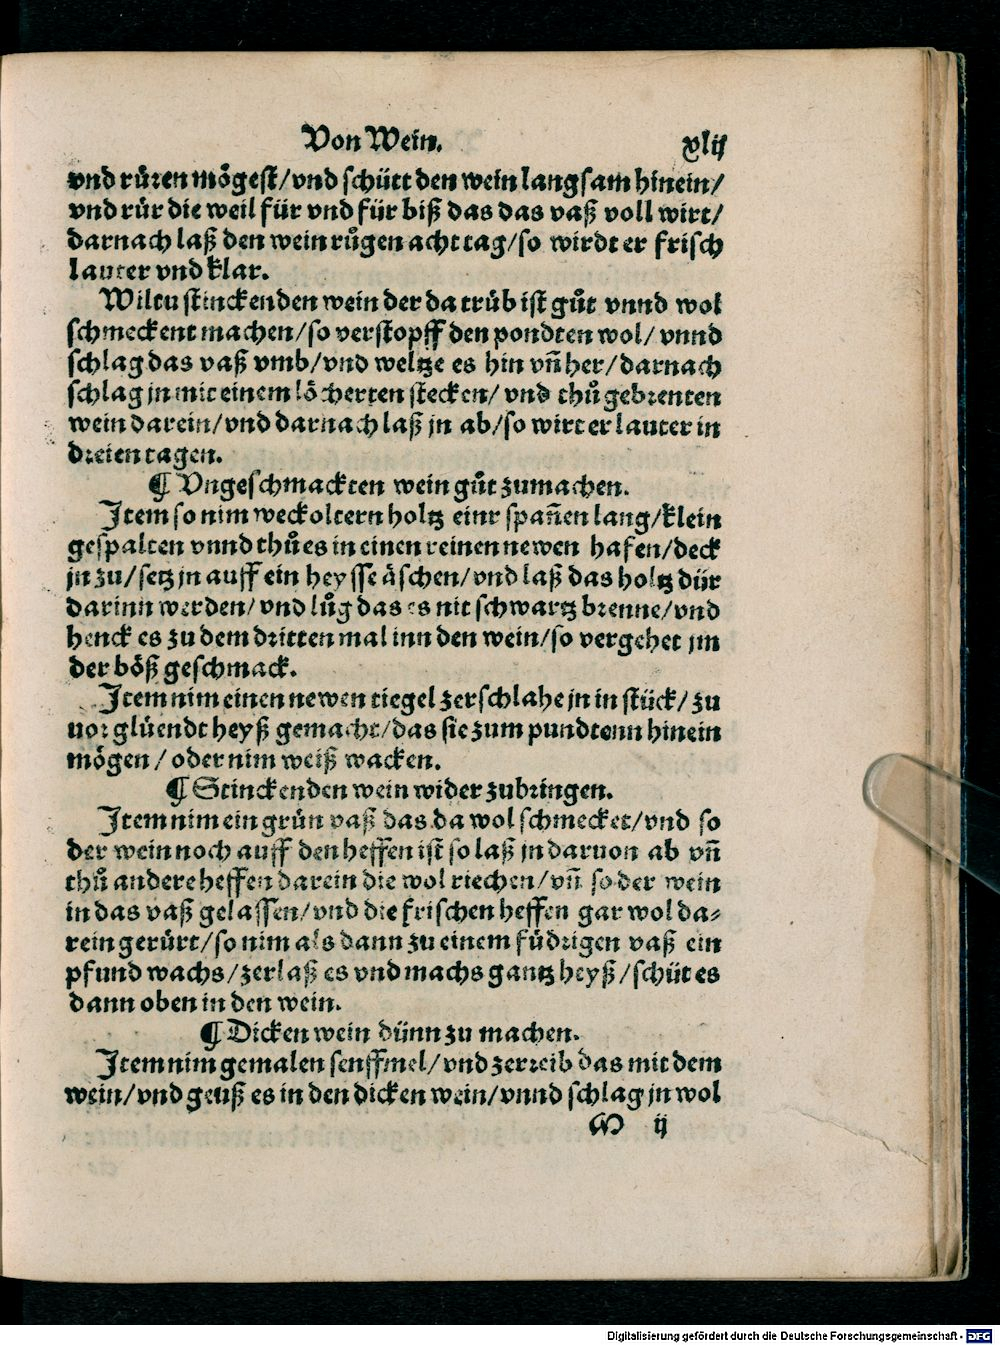 Von Wein. xlij
vnd ruͤren moͤgest/vnd schütt den wein langsam hinein/
vnd ruͤr die weil für vnd für biß das das vaß voll wirt/
darnach laß den wein ruͦgen acht tag/so wirdt er frisch
lauter vnd klar.
Wiltu stinckenden wein der da truͤb ist guͦt vnnd wol
schmeckent machen/so verstopff den pondten wol/ vnnd
schlag das vaß vmb/vnd weltze es hin vñ her/darnach
schlag jn mit einem loͤcherten stecken/ vnd thuͦ gebrenten
wein darein/vnd darnach laß jn ab/so wirt er lauter in
dreien tagen.
¶ Vngeschmackten wein guͦt zumachen.
Item so nim weckoltern holtz einr spañen lang/klein
gespalten vnnd thuͦ es in einen reinen newen hafen/deck
jn zu/setz jn auff ein heysse aͤschen/vnd laß das holtz dür
darinn werden/vnd luͦg das es nit schwartz brenne/vnd
henck es zu dem dritten mal inn den wein/so vergehet jm
der boͤß geschmack.
Item nim einen newen tiegel zerschlahe jn in stück/ zu
uor gluͤendt heyß gemacht/das sie zum pundtenn hinein
moͤgen/ oder nim weiß wacken.
¶ Stinckenden wein wider zubringen.
Item nim ein gruͤn vaß das da wol schmecket/vnd so
der wein noch auff den heffen ist so laß jn daruon ab vñ
thuͦ andere heffen darein die wol riechen/vñ so der wein
in das vaß gelassen/vnd die frischen heffen gar wol da⸗
rein geruͤrt/so nim als dann zu einem fuͤdrigen vaß ein
pfund wachs/zerlaß es vnd machs gantz heyß/schüt es
dann oben in den wein.
¶ Dicken wein dünn zu machen.
Item nim gemalen senffmel/vnd zerreib das mit dem
wein/vnd geuß es in den dicken wein/vnnd schlag jn wol
M ij
Digitalisierung gefördert durch die Deutsche Forschungsgemeinschaft - DFG